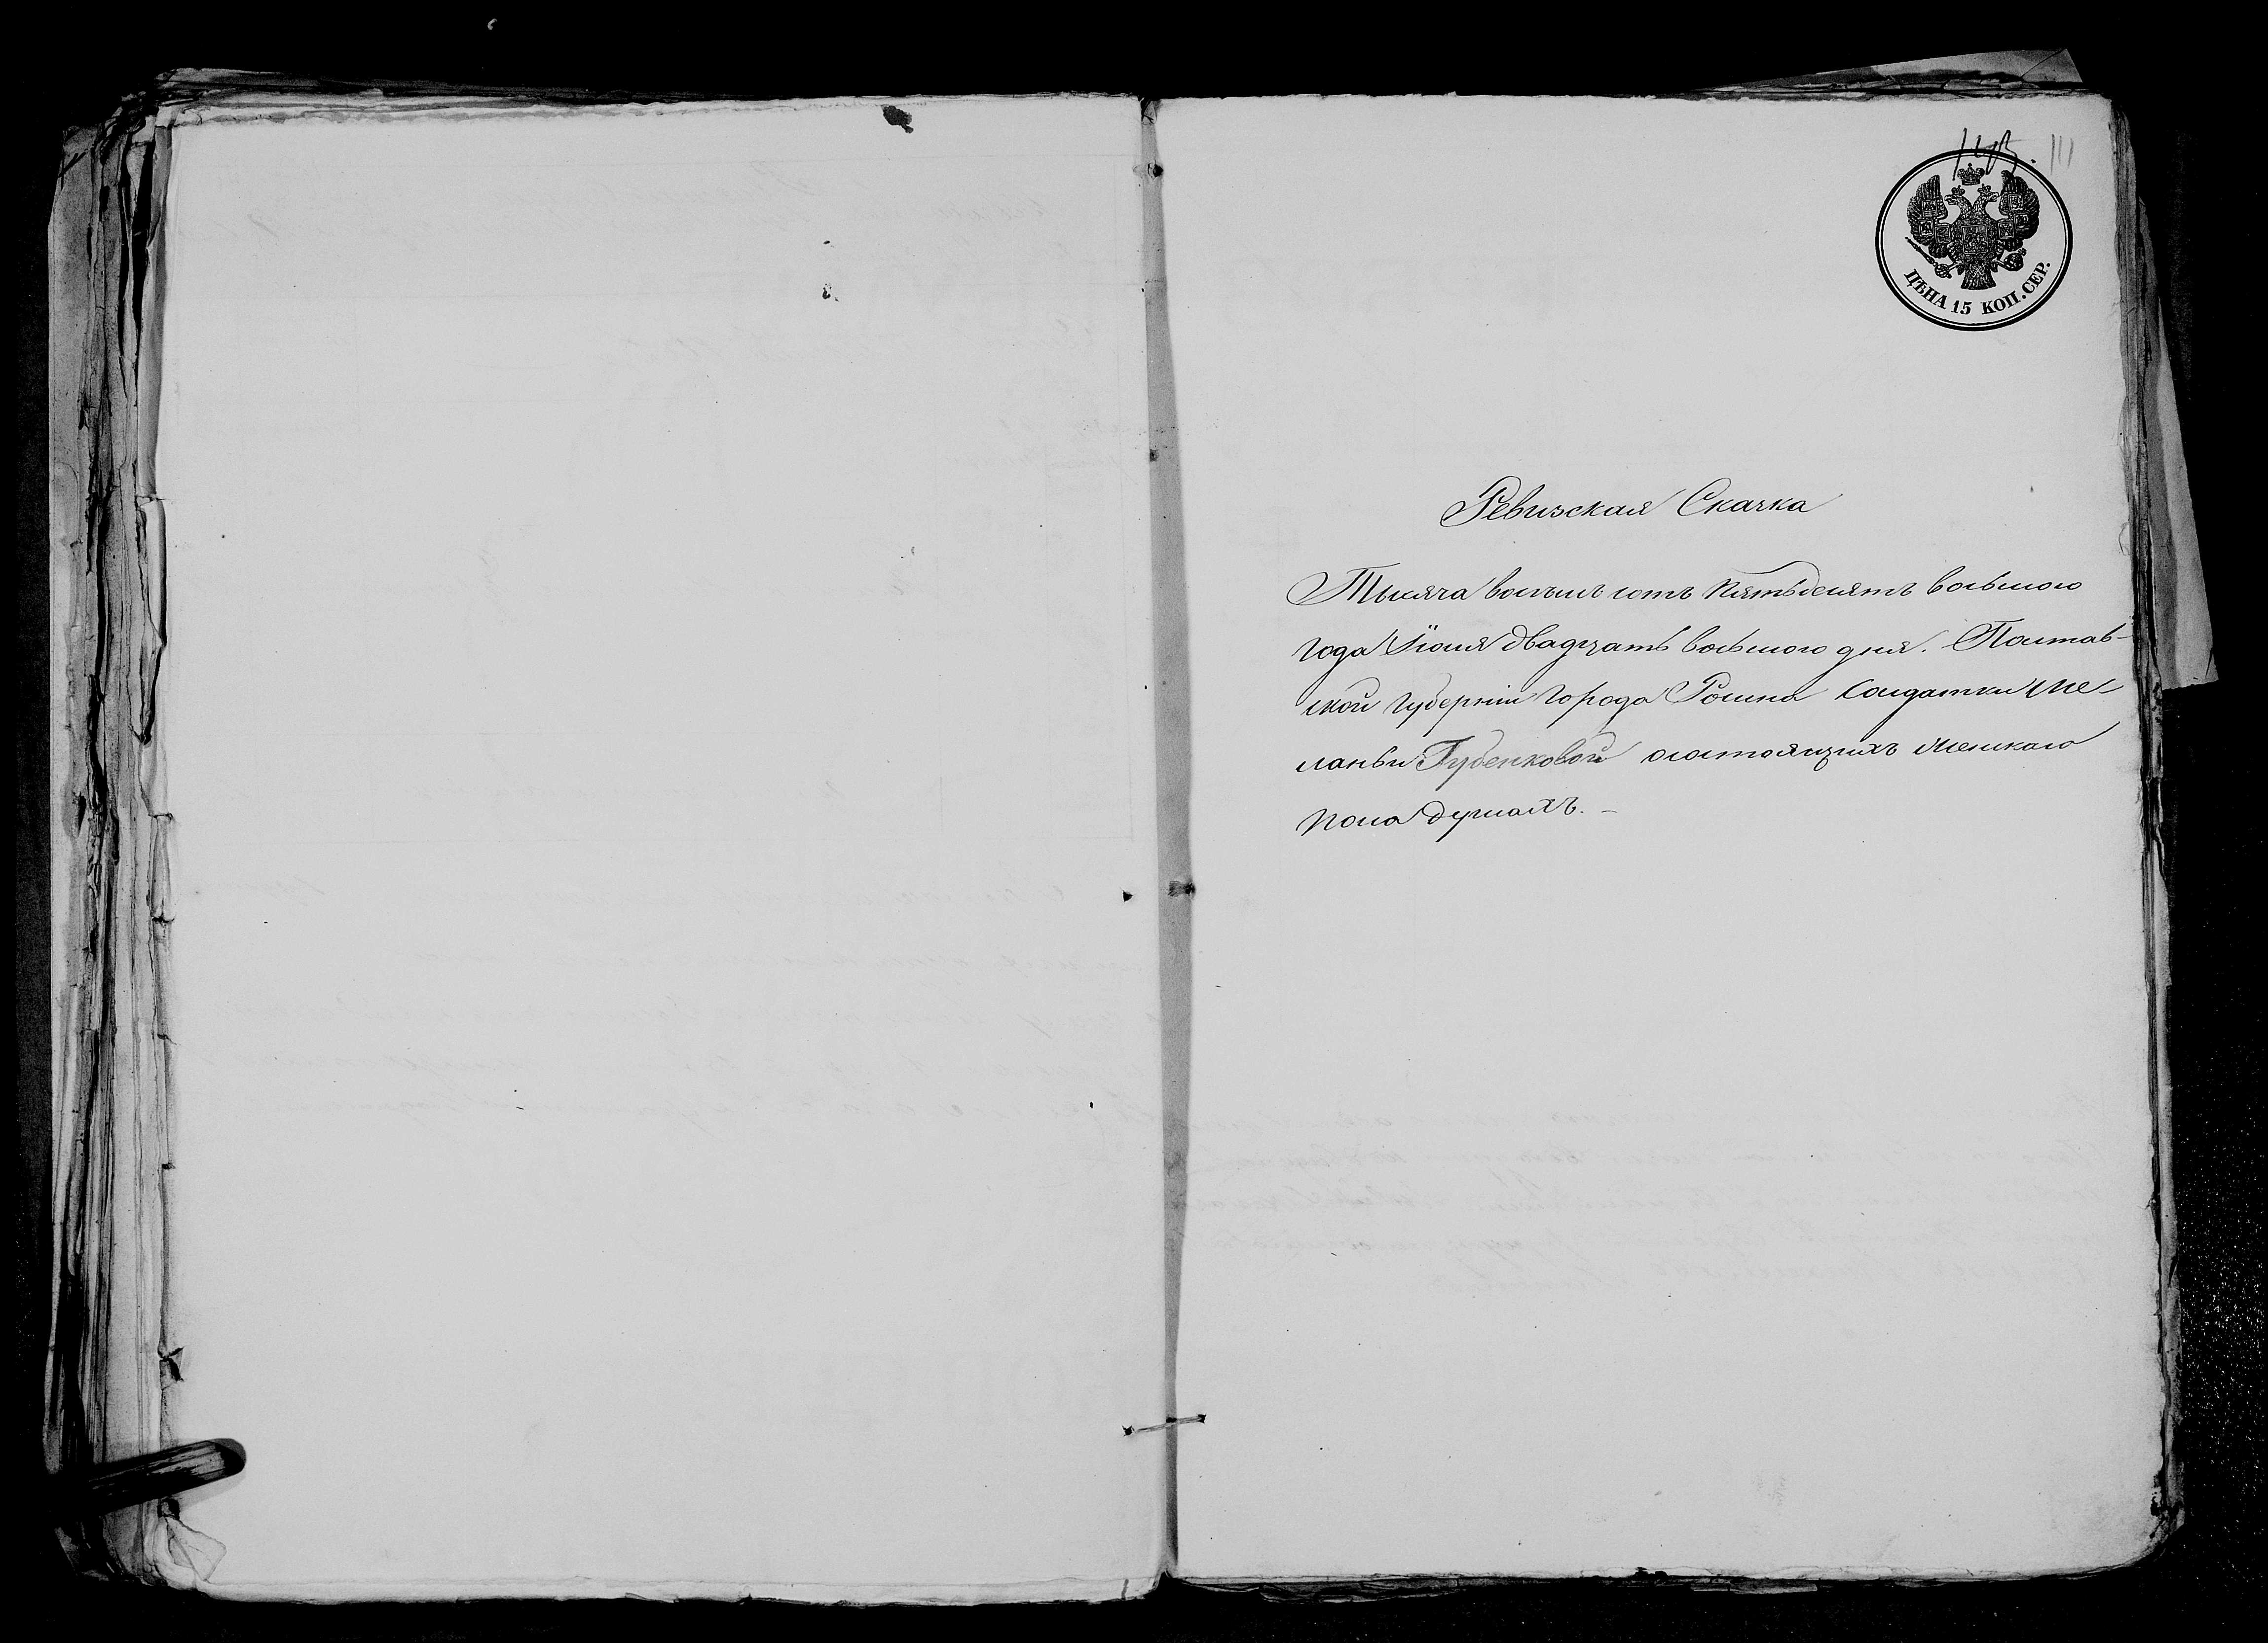 111
ЦѢНА 15 КОП. СЕР.
Ревизская Сказка
Тысяча восемь сотъ пятьдесятъ восьмого
года Іюня двадцать восьмого дня. Полтав-
ской губерніи города Ромна солдатки Ме-
ланьи Губенковой о состоящихъ женскаго
пола душахъ. –